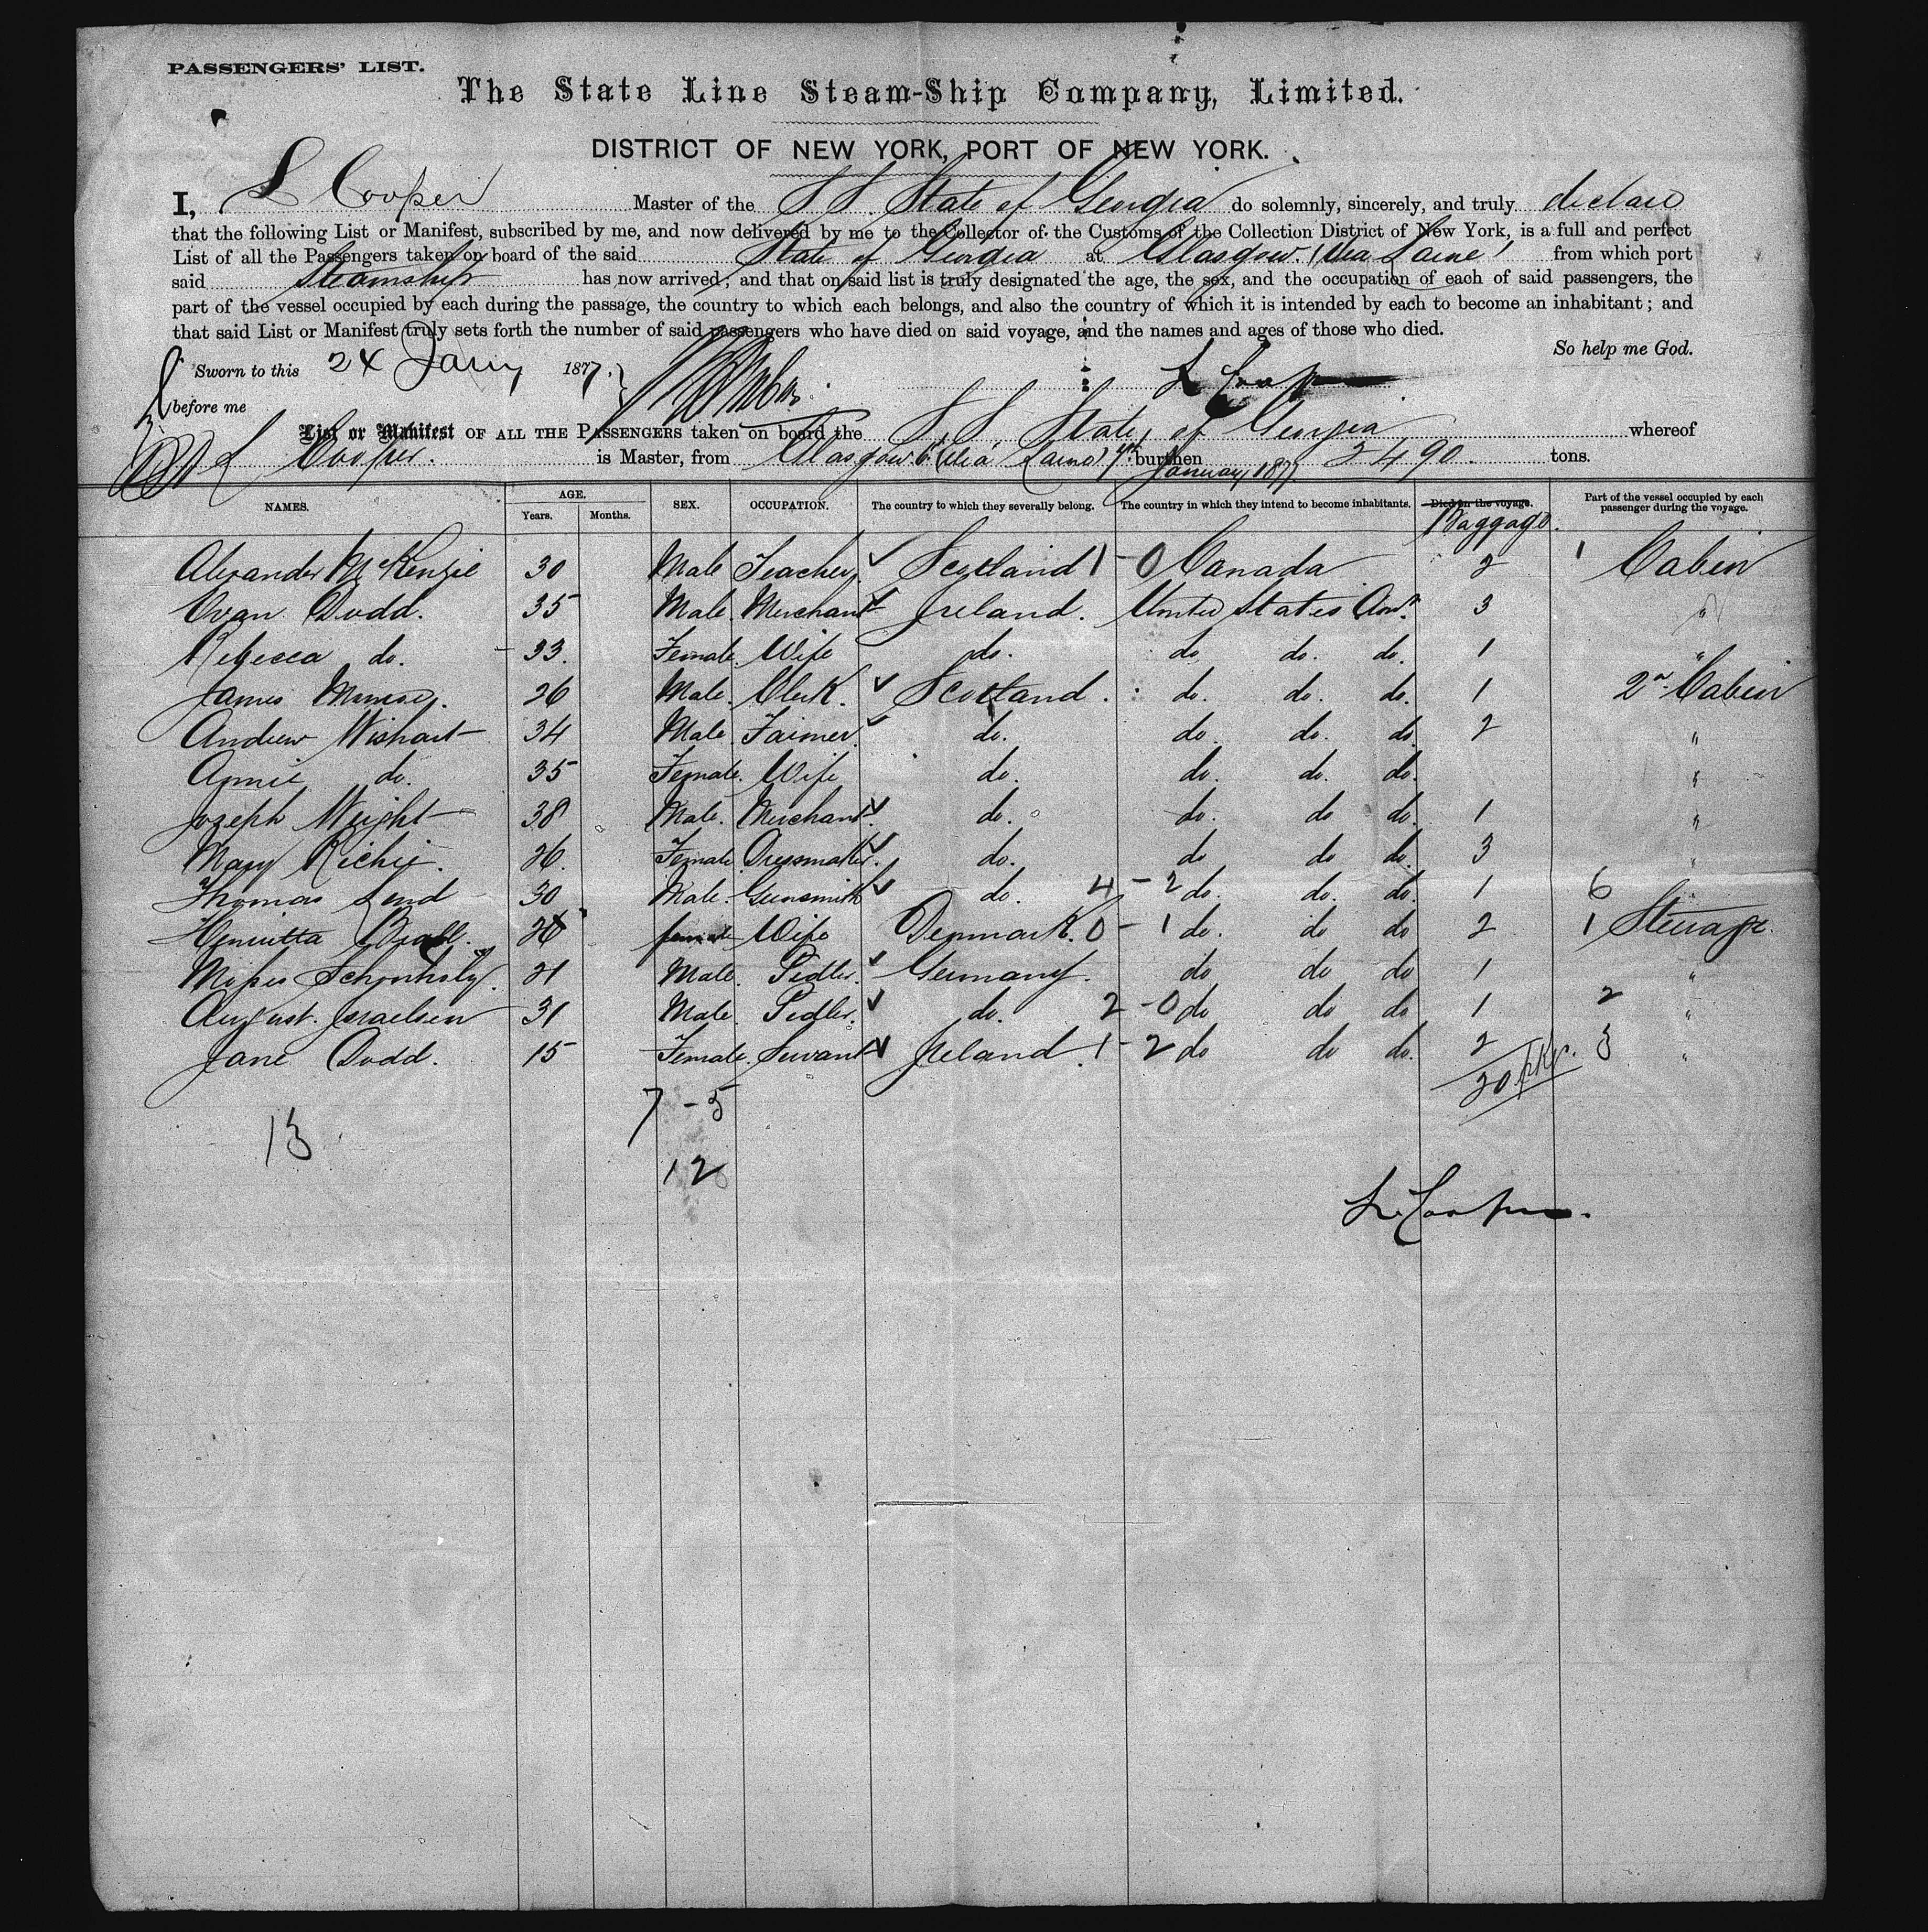 PASSENGERS' LIST.
The State Line Steam-Ship Company, Limited.
DISTRICT OF NEW YORK, PORT OF NEW YORK.
I, L Cooper Master of the S S. State of Georgia do solemnly, sincerely, and truly declare
that the following List or Manifest, subscribed by me, and now delivered by me to the Collector of the Customs of the Collection District of New York, is a full and perfect
List of all the Passengers taken on board of the said State of Georgia at Glasgow (via Larne) from which port
said Steamship has now arrived; and that on said list is truly designated the age, the sex, and the occupation of each of said passengers, the
part of the vessel occupied by each during the passage, the country to which each belongs, and also the country of which it is intended by each to become an inhabitant; and
that said List or Manifest truly sets forth the number of said passengers who have died on said voyage, and the names and ages of those who died.
So help me God.
Sworn to this 24 Jany 1877. L Cooper
before me
List or Manifest OF ALL THE PASSENGERS taken on board the S S State of Georgia whereof
L Cooper. is Master, from Glasgow (via Larne) January 1877 burthen 2490. tons.
NAMES. AGE. Years. Months. SEX. OCCUPATION. The country to which they severally belong. The country in which they intend to become inhabitants. Died on the voyage. Baggage. Part of the vessel occupied by each passenger during the voyage.
Alexander McKenzie 30 Male Teacher Scotland 1 - 0 Canada 2 1 Cabin
Evan Dodd. 35 Male. Merchant Ireland. United States Am. 3 "
Rebecca do. 33. Female. Wife do. do do. do. 1 "
James 26 Male. Clerk. Scotland. do. do. do. 1 2nd Cabin
Andrew Wishart 34 Male. Farmer. do. do. do. do. 2 "
Annie do. 35 Female. Wife do. do. do. do. "
Joseph Wright 38 Male. Merchant. do. do. do do. 1 "
Mary Richie. 26. Female Dressmaker. do. do do do. 3 "
Thomas Lend 30 Male. Gunsmith do. 4 - 2 do. do. do. 1 6 "
Henrietta female Wife Denmark. 0 - 1 do. do do 2 1 Steerage.
Moses 21 Male. Pedler. Germany. do do do 1 "
August. Israelsen 31 Male. Pedler. do. 2 - 0 do do do 1 2 "
Jane Dodd. 15 Female. Servant Ireland. 1 - 2 do do do. 2 3 "
20 pkgs.
7 - 5
13
12
L. Cooper.